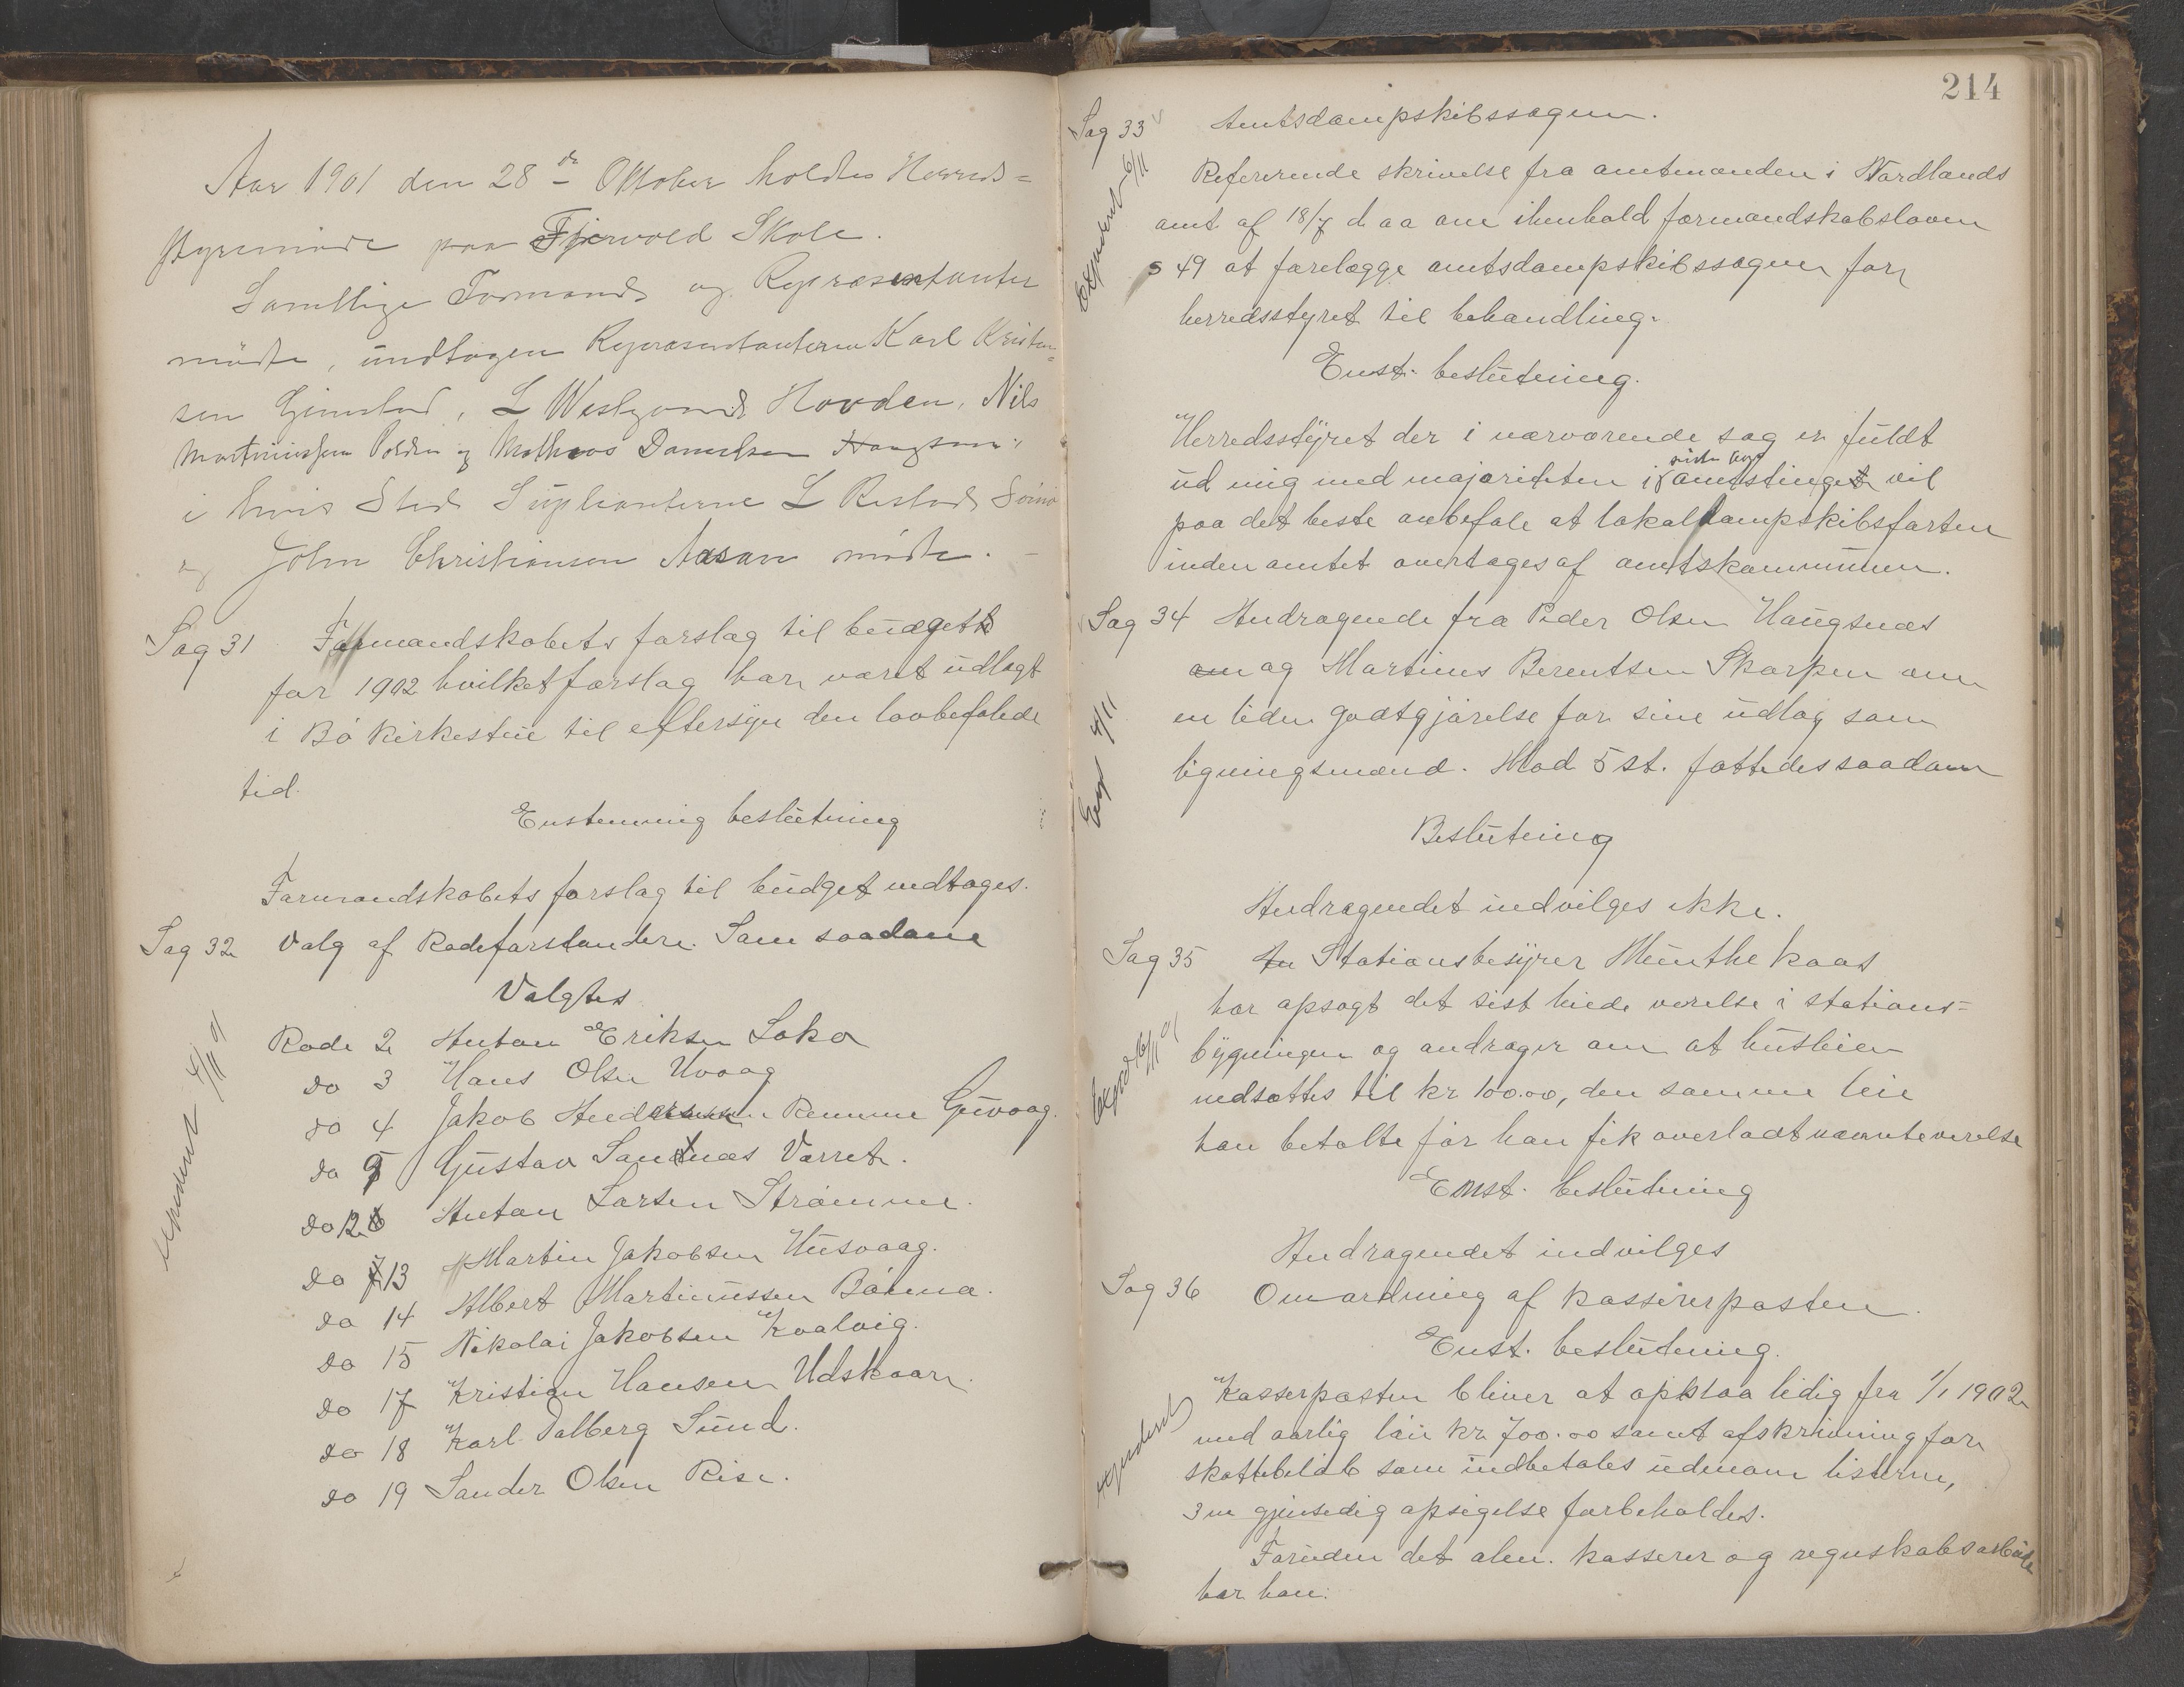 Aar 1901 den 28de Oktober holdtes Herreds=
styremøde paa Fjærvold Skole.
Samtlige Formænd og Repræsentanter
mødte, undtagen Repræsentanterne Karl Kristen=
sen Guvaag, L Westgaard Hovden, Nils
Martinussen og Mathæus Danielsen Haugsnes
i hvis Sted Suplianterne L Ristad
og John Christiansen Aasan mødte.
Sag 31 Formandskabets forslag til budgett
for 1902 hvilket forslag har været udlagt
i Bø kirkestue til eftersyn den lovbefalede
tid.
Enstemmig beslutning
Formandskabets forslag til budget vedtages.
Sag 32 Valg af Rodeforstandere. Som saadane
Valgtes
Rode 2 Anton Eriksen Loka
do 3 Hans Olsen Uvaag
do 4 Jakob Andersen Remme Guvaag.
do 9 Gustav Sandnæs Værret.
do 12 Anton Larsen Strømme.
do 13 Martin Jakobsen Husvaag.
do 14 Albert Martinussen Bånna.
do 15 Nikolai Jakobsen Kvalvig.
do 17 Kristian Hansen Udskaar.
do 18 Karl Dalberg Sund.
do 19 Sander Olsen Rise.
expederet 4/11 01
214
Sag 33 Amtsdampskibssagen.
Expederet 6/11
Refererende skrivelse fra amtmanden i Nordlands
amt af 18/7 d aa om ihenhold formandskabsloven
§ 49 at forelægge amtsdampskibssagen for
herredsstyret til behandling.
Enst. beslutning.
Herredsstyret der i nærværende sag er fuldt
ud enig med majoriteten i sidste aars amtstinget vil
paa det beste anbefale at lokaldampskibsfarten
inden amtet overtages af amtskommunen.
Sag 34 Andragende fra Peder Olsen Haugsnæs
om og Martines Berentsen Skarpen om
en liden godtgjørelse for sine udlæg som
ligningsmænd. Mod 5 st. fattedes saadan
Exp 4/11
Beslutning
Andragendet indvilges ikke.
Sag 35 An Stationsbestyrer Munthe Kaas
har opsagt det sist leiede værelse i stations=
bygningen og andrager om at husleien
nedsættes til kr 100.00, den samme leie
han betalte før han fik overladt nævnte værelse
Exped 6/11 01
Enst. beslutning
Andragendet indvilges
Sag 36 Omordning af kassererposten.
Enst. beslutning.
Kasserposten bliver at opslaa ledig fra 1/1 1902
med aarlig løn kr 700.00 samt afskrivning for
skattebeløb som indbetales udenom listerne,
3 m gjensidig opsigelse forbeholdes.
expederet
Foruden det alm. kasserer og regnskabsarbeide
har han: